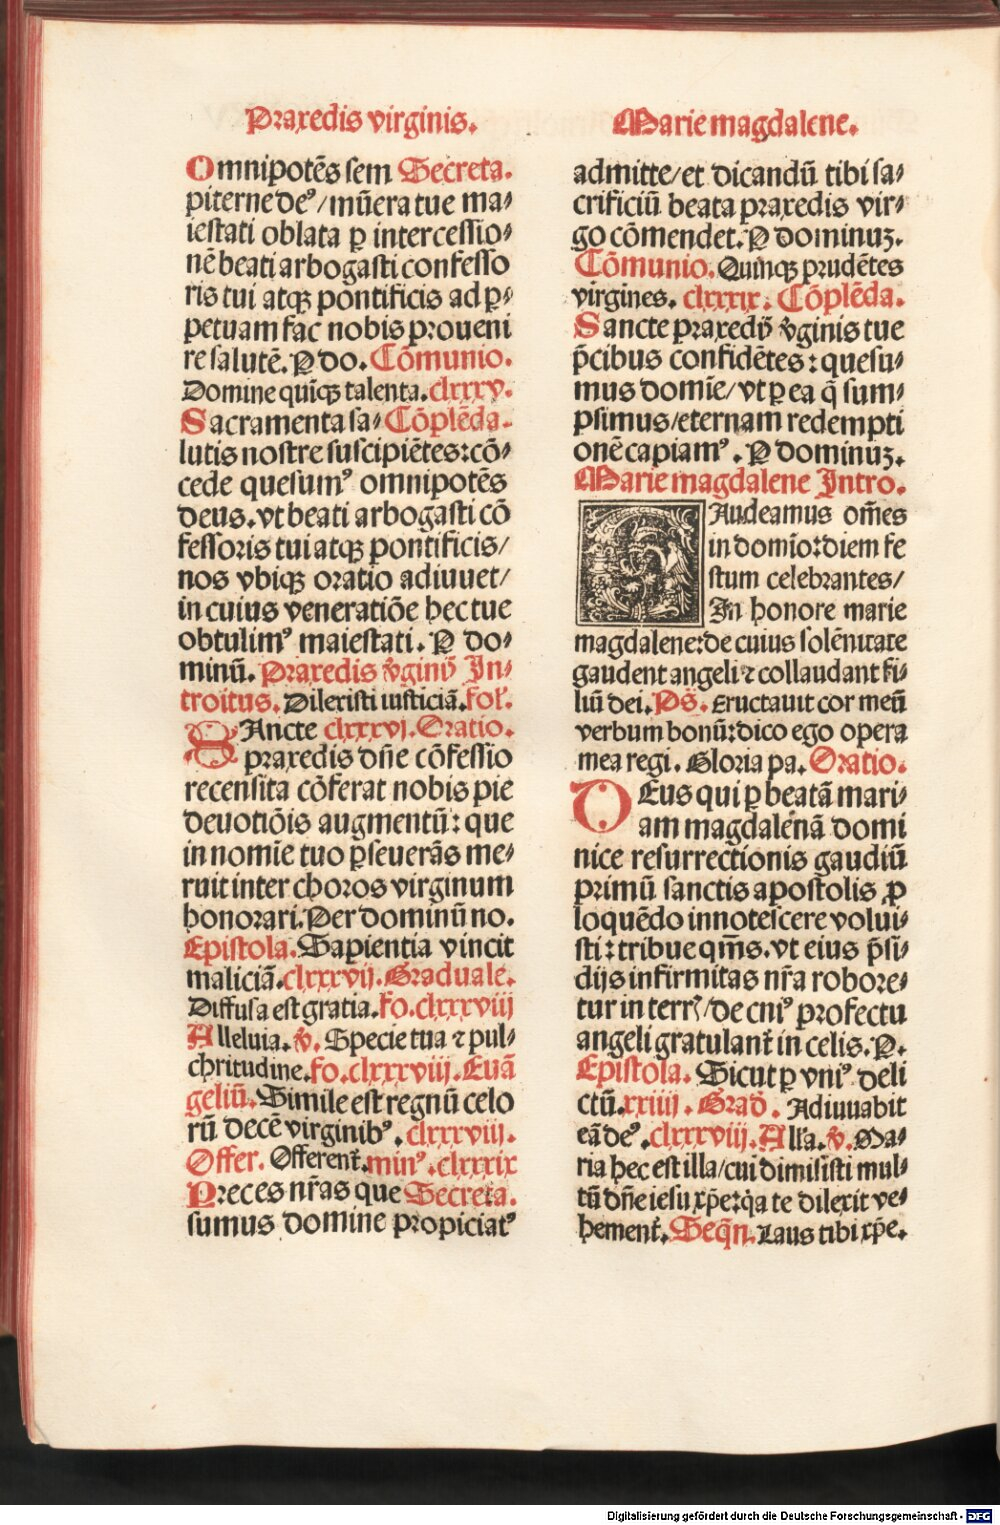 Praxedis virginis.
Omnipotẽs sem Secreta.
piterne deꝰ/mũera tue ma⸗
iestati oblata ꝑ intercessio⸗
nẽ beati arbogasti confesso
ris tui atqꝫ pontificis ad ꝑ⸗
petuam fac nobis proueni
re salutẽ. P do. Cõmunio.
Domine quĩqꝫ talenta. clxxxv.
Sacramenta sa⸗ Cõplẽda.
lutis nostre suscipiẽtes: cõ⸗
cede quesumꝰ omnipotẽs
deus. vt beati arbogasti cõ
fessoris tui atqꝫ pontificis/
nos vbiqꝫ oratio adiuuet/
in cuius veneratiõe hec tue
obtulimꝰ maiestati. P do⸗
minũ. Praxedis v̉giniꝰ In⸗
troitus. Dilexisti iusticiã. fol.
SAncte clxxxvi. Oratio.
praxedis dñe cõfessio
recensita cõferat nobis pie
deuotiõis augmentũ: que
in nomĩe tuo ꝑseuerãs me⸗
ruit inter choros virginum
honorari. Per dominũ no.
Epistola. Sapientia vincit
maliciã. clxxxvij. Graduale.
Diffusa est gratia. fo. clxxxviij
Alleluia. v̉. Specie tua ⁊ pul⸗
chritudine. fo. clxxxviij. Euã
geliũ. Simile est regnũ celo
rũ decẽ virginibꝰ. clxxxviij.
Offer. Offerent̉. minꝰ. clxxxix
Preces nr̃as que Secreta.
sumus domine propiciatꝰ
Marie magdalene.
admitte/et dicandũ tibi sa⸗
crificiũ beata praxedis vir⸗
go cõmendet. P dominuꝫ.
Cõmunio. Quinqꝫ prudẽtes
virgines. clxxxix. Cõplẽda.
Sancte praxediꝰ v̉ginis tue
p̃cibus confidẽtes: quesu⸗
mus domĩe/vt ꝑ ea q̃ sum⸗
psimus/eternam redempti
onẽ capiamꝰ. P dominuꝫ.
Marie magdalene Intro.
GAudeamus om̃es
in domĩo: diem fe
stum celebrantes/
In honore marie
magdalene: de cuius solẽnitate
gaudent angeli ⁊ collaudant fi⸗
liũ dei. Ps̃. Eructauit cor meũ
verbum bonũ: dico ego opera
mea regi. Gloria pa. Oratio.
DEus qui ꝑ beatã mari⸗
am magdalenã domi
nice resurrectionis gaudiũ
primũ sanctis apostolis ꝓ
loquẽdo innotescere volui⸗
sti: tribue qm̃s. vt eius p̃si⸗
dijs infirmitas nr̃a robore⸗
tur in terrꝭ/de cniꝰ profectu
angeli gratulant̉ in celis. P.
Epistola. Sicut ꝑ vniꝰ deli
ctũ. xxiiij. Grad̉. Adiuuabit
eã deꝰ. clxxxviij. All'a. v̉. Ma⸗
ria hec est illa/cui dimisisti mul⸗
tũ dñe iesu xp̃e: q̃a te dilexit ve⸗
hement̉. Seq̃n. Laus tibi xp̃e.
Digitalisierung gefördert durch die Deutsche Forschungsgemeinschaft - DFG